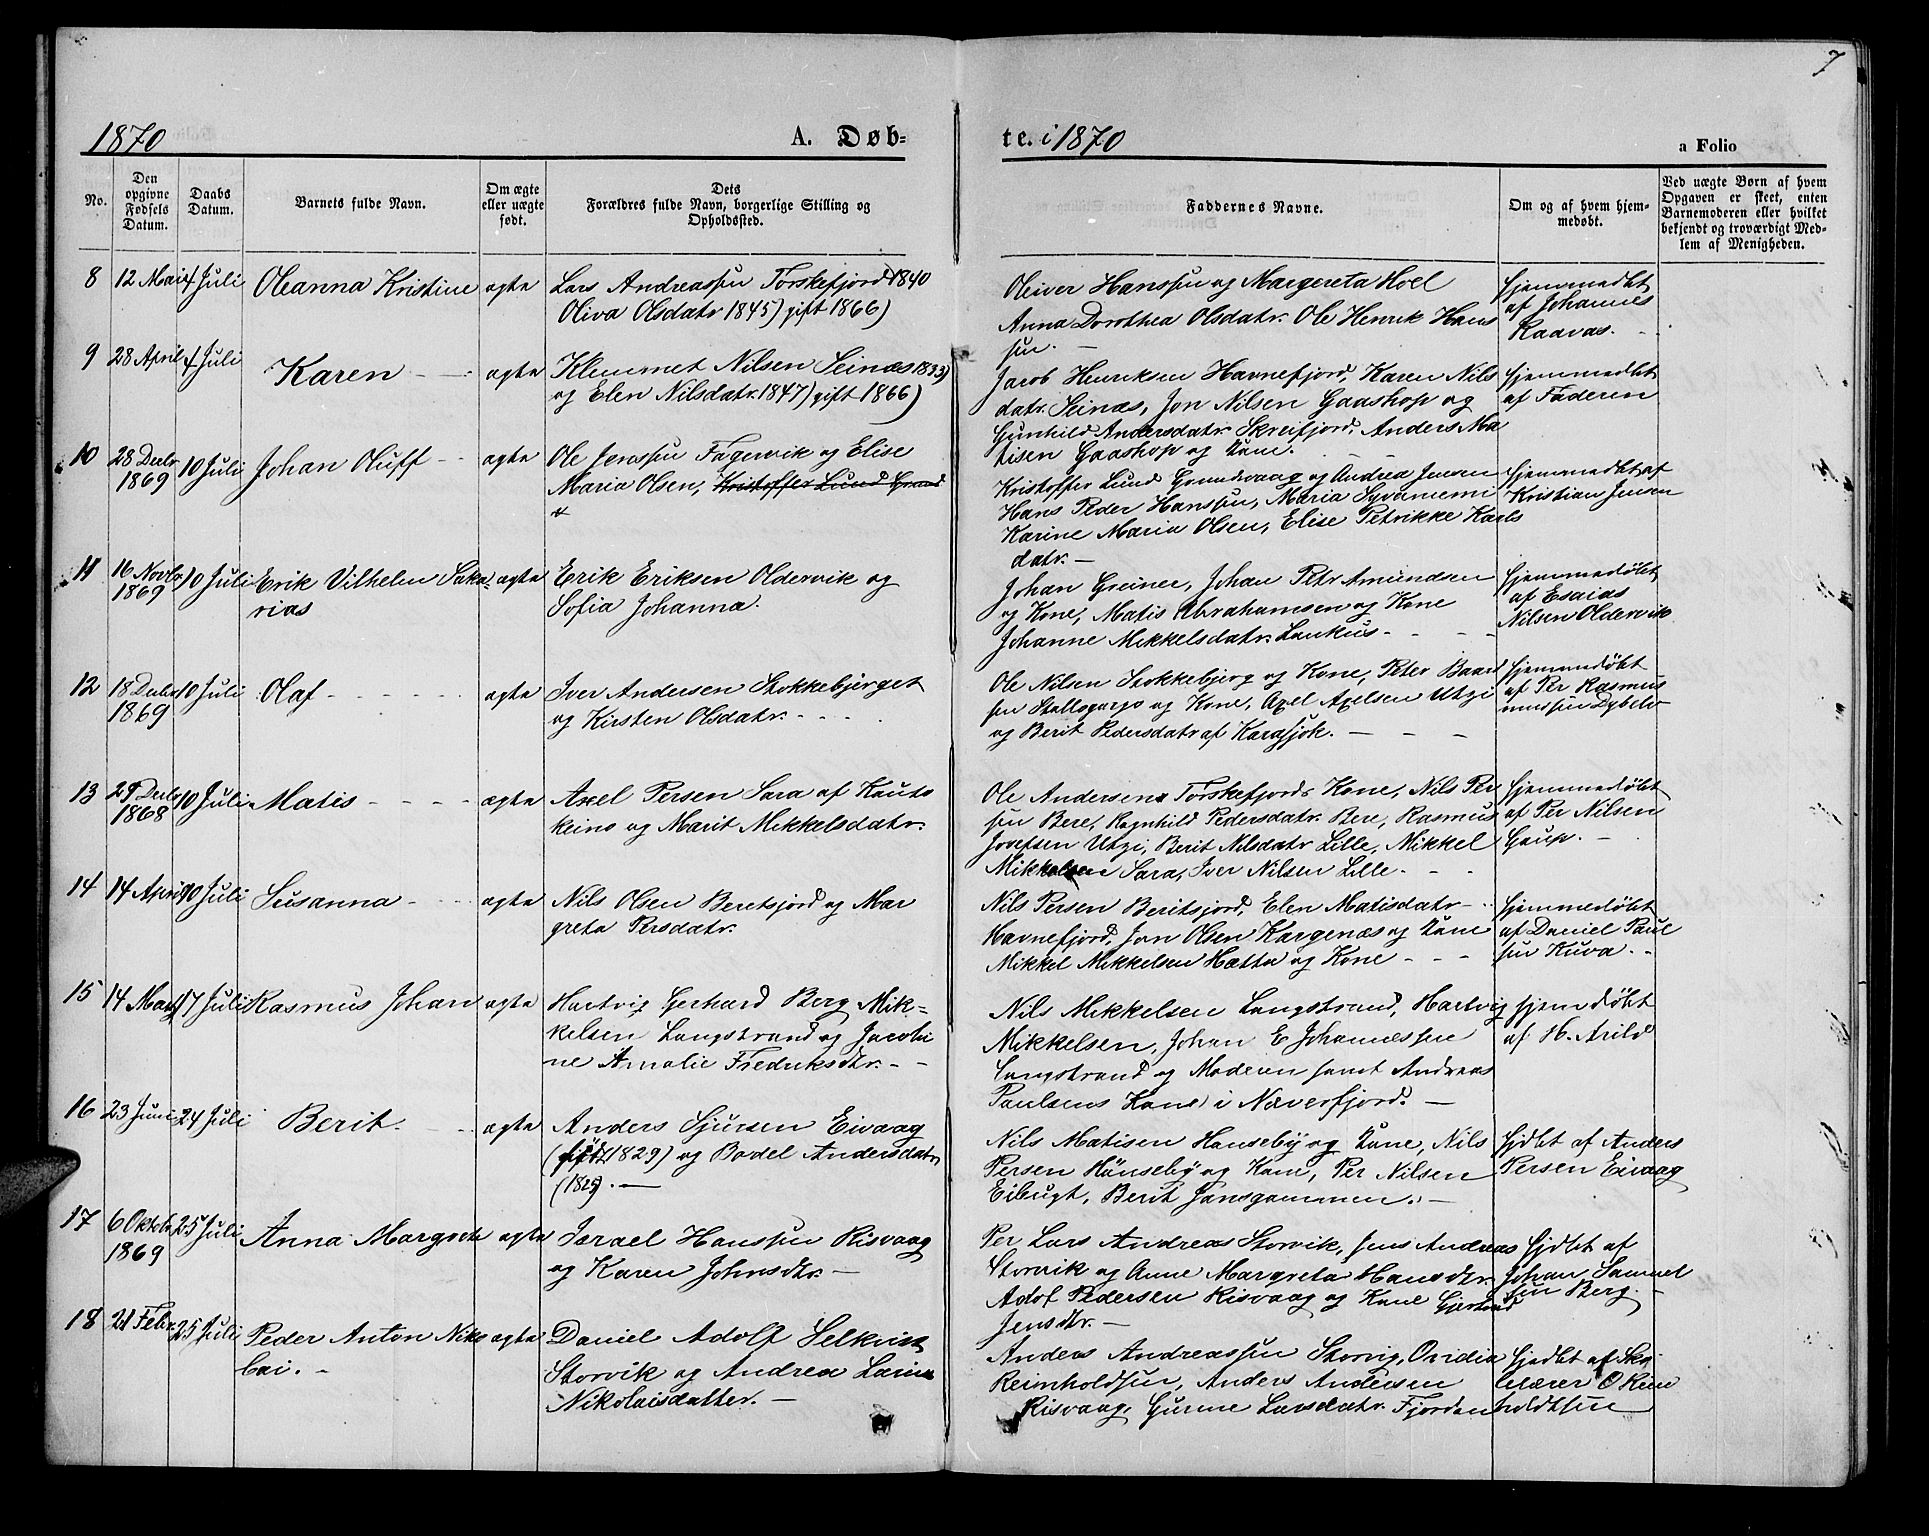 7
1870
A. Døb-
te. i 1870
a Folio
No.
Den opgivne Fødsels Datum.
Daabs Datum.
Barnets fulde Navn.
Om ægte eller uægte født.
Dets Forældres fulde Navn, borgerlige Stilling og Opholdssted.
Faddernes Navne.
Om og af hvem hjemmedøbt.
Ved uægte Børn af hvem Opgaven er skeet, enten Barnemoderen eller hvilket bekjendt og troværdigt Medlem af Menigheden.
8 12 Mai 4 Juli Oleanna Kristine ægte
Lars Andreassen Torskefjord 1840
Oliva Olsdatr 1845) gift 1866)
Oliver Hanssen og Margereta Hoel
Anna Dorothea Olsdatr. Ole Henrik Hans
sen. —
Hjemmedbt
af Johannes
Raavas.
9 28 April 4 Juli Karen ægte
Klemmet Nilsen Seinæs 1833)
og Elen Nilsdatr. 1847) gift 1866)
Jacob Henriksen Havnefjord, Karen Nils
datr. Seinæs, Jon Nilsen Gaashop og
Gunhild Andersdatr. Skreifjord, Anders Ma
tisen Gaashop og Kone.
Hjemmedbt
af Faderen
10 28 Decbr 1869 10 Juli Johan Oluff ægte
Ole Jenssen Fagervik og Elise
Maria Olsen, Kristoffer Lund Grund
Kristoffer Lund Grundvaag og Andrea Jensen
Hans Peder Hanssen, Maria
Karine Maria Olsen, Elise Petrikke Karls
datr. —
Hjemmedbt af
Kristian Jensen
11 16 Novbr 1869 10 Juli Erik Vilhelm Saka-
rias ægte
Erik Eriksen Oldervik og
Sofia Johanna.
Johan Greiner, Johan Petr Amundsen
og Kone, Matis Abrahamsen og Kone
Johanne Mikkelsdatr. Laukus
Hjemmedøbt
af Esaias
Nilsen Oldervik
12 18 Decbr 1869 10 Juli Olaf ægte
Iver Andersen Stokkebjerget
og Kirsten Olsdatr.
Ole Nilsen Stokkebjerg og Kone, Peter Baard
sen Stallogargo og Kone, Axel Axelsen Utzi
og Berit Pedersdatr af Karasjok.
Hjemmedøbt
af Per Rasmus
mussen Dybelv
13 29 Decbr 1868 10 Juli Matis ægte
Axel Persen Sara af Kauto
keino og Marit Mikkelsdatr.
Ole Andersens Torskefjords Kone, Nils Per
sen Bere, Ragnhild Pedersdatr. Bere, Rasmus
Josefsen Utzi, Berit Nilsdatr Lille, Mikkel
Mikkelsen Sara, Iver Nilsen Lille.
Hjemmedøbt
af Per Nilsen
Gaup. —
14 14 April 10 Juli Susanna ægte
Nils Olsen Beretsjord og Mar
greta Persdatr.
Nils Persen Beritsjord, Elen Matisdatr
Havnefjord, Jon Olsen Kargenæs og Kone
Mikkel Mikkelsen Hætta og Kone
Hjemmedøbt
af Daniel Paul
sen Kuva.
15 14 Marts 17 Juli Rasmus Johan ægte
Hartvig Gerhard Berg Mik-
kelsen Langstrand og Jacobi
ne Amalie Fredriksdtr.
Nils Mikkelsen Langstrand, Hartvig
Mikkelsen, Johan E Johannessen
Langstrand og Moderen samt Andreas
Paulsens Kone i Næverfjord. —
Hjemdøbt
af H. Arild
16 23 Juni 24 Juli Berit. ægte
Anders Sjursen Eivaag
(født 1829) og Bodel Andersdatr
(1825). —
Nils Matisen Hønseby og Kone, Nils
Persen Hønseby og Kone, Per Nilsen
Eibugt, Berit Jansgammen. —
Hjdbt af Anders
Persen Eivaag
17 6 Oktobr 1869 25 Juli Anna Margrete ægte
Israel Hanssen Risvaag
og Karen Johnsdtr. —
Per Lars Andreas Storvik, Jens Andreas
Storvik og Anne Margreta Hansdtr.
Adof Pedersen Risvaag og Kone Gjertrud
Jensdtr. —
Hjdbt af
Johan Samuel
sen Berg.
18 21 Febr. 25 Juli Peder Anton Niko
lai. — ægte
Daniel Adolf Selkvist
Storvik og Andrea Larine
Nikolaisdatter. —
Anders Andreassen Storvig, Ovidia
Reinholdsen, Anders Andersen
Risvaag, Gurine Larsdatr. Fjorden
Hjedbt af Sko
lelærer O Rein
holdtsen